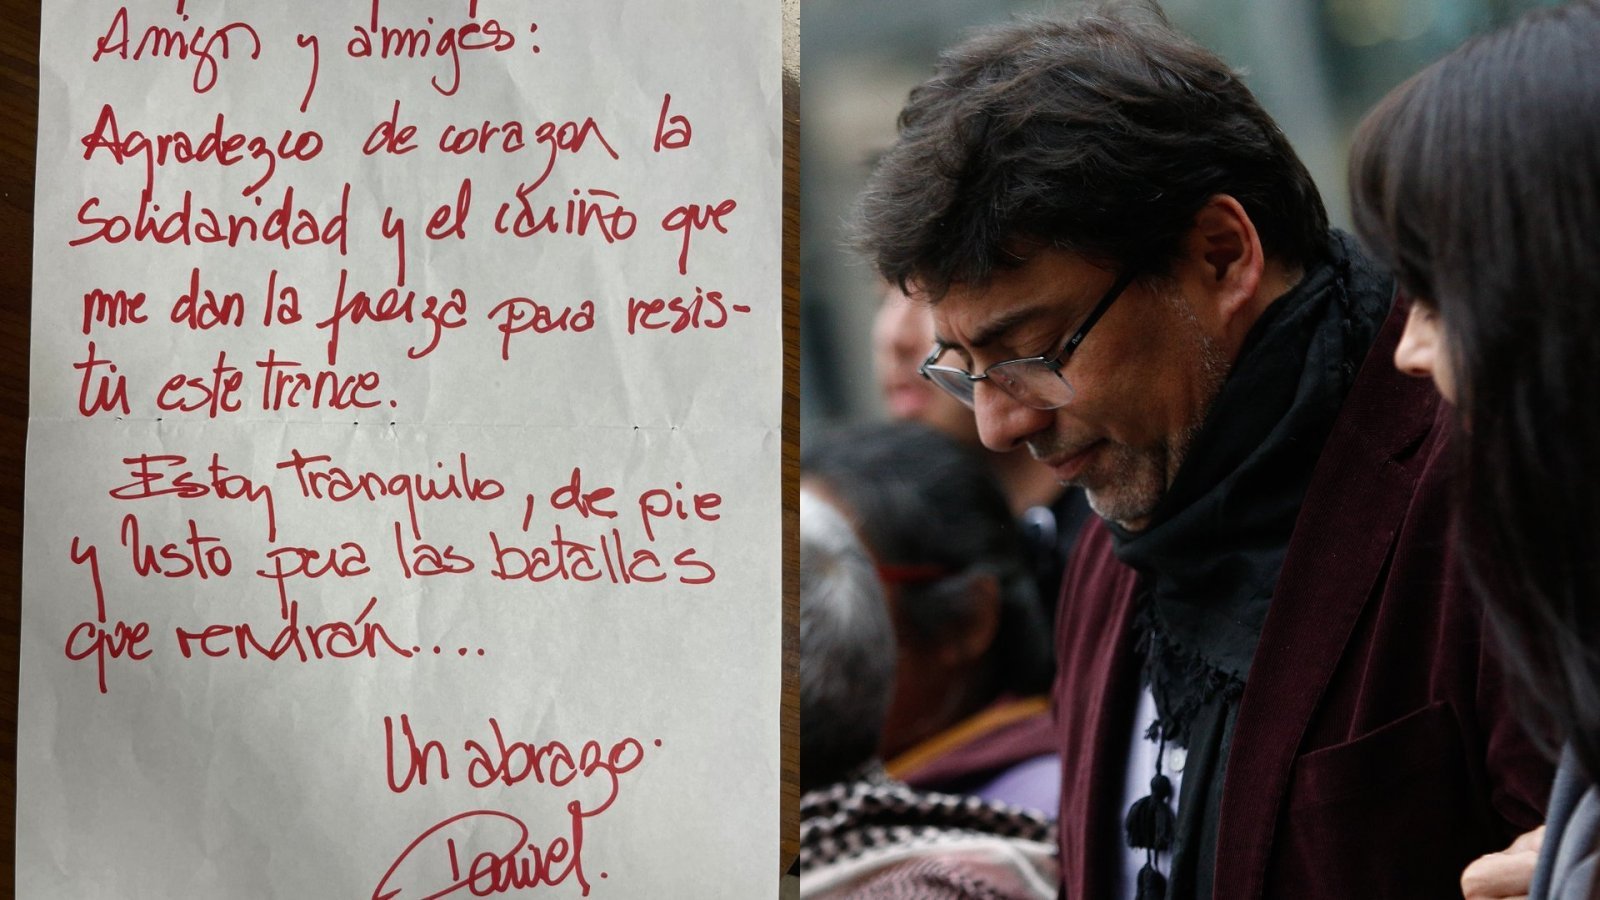 Amigos y amigas:
Agradezco de corazon la
solidaridad y el cariño que
me dan la fuerza para resis-
tir este trance.
Estoy tranquilo, de pie
y listo para las batallas
que vendrán....
Un abrazo.
Daniel.